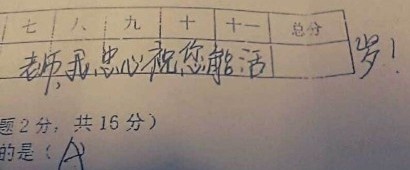 七 八 九 十 十一 总分
老师,我忠心祝您能活 岁!
题2分,共16分)
的是(A)